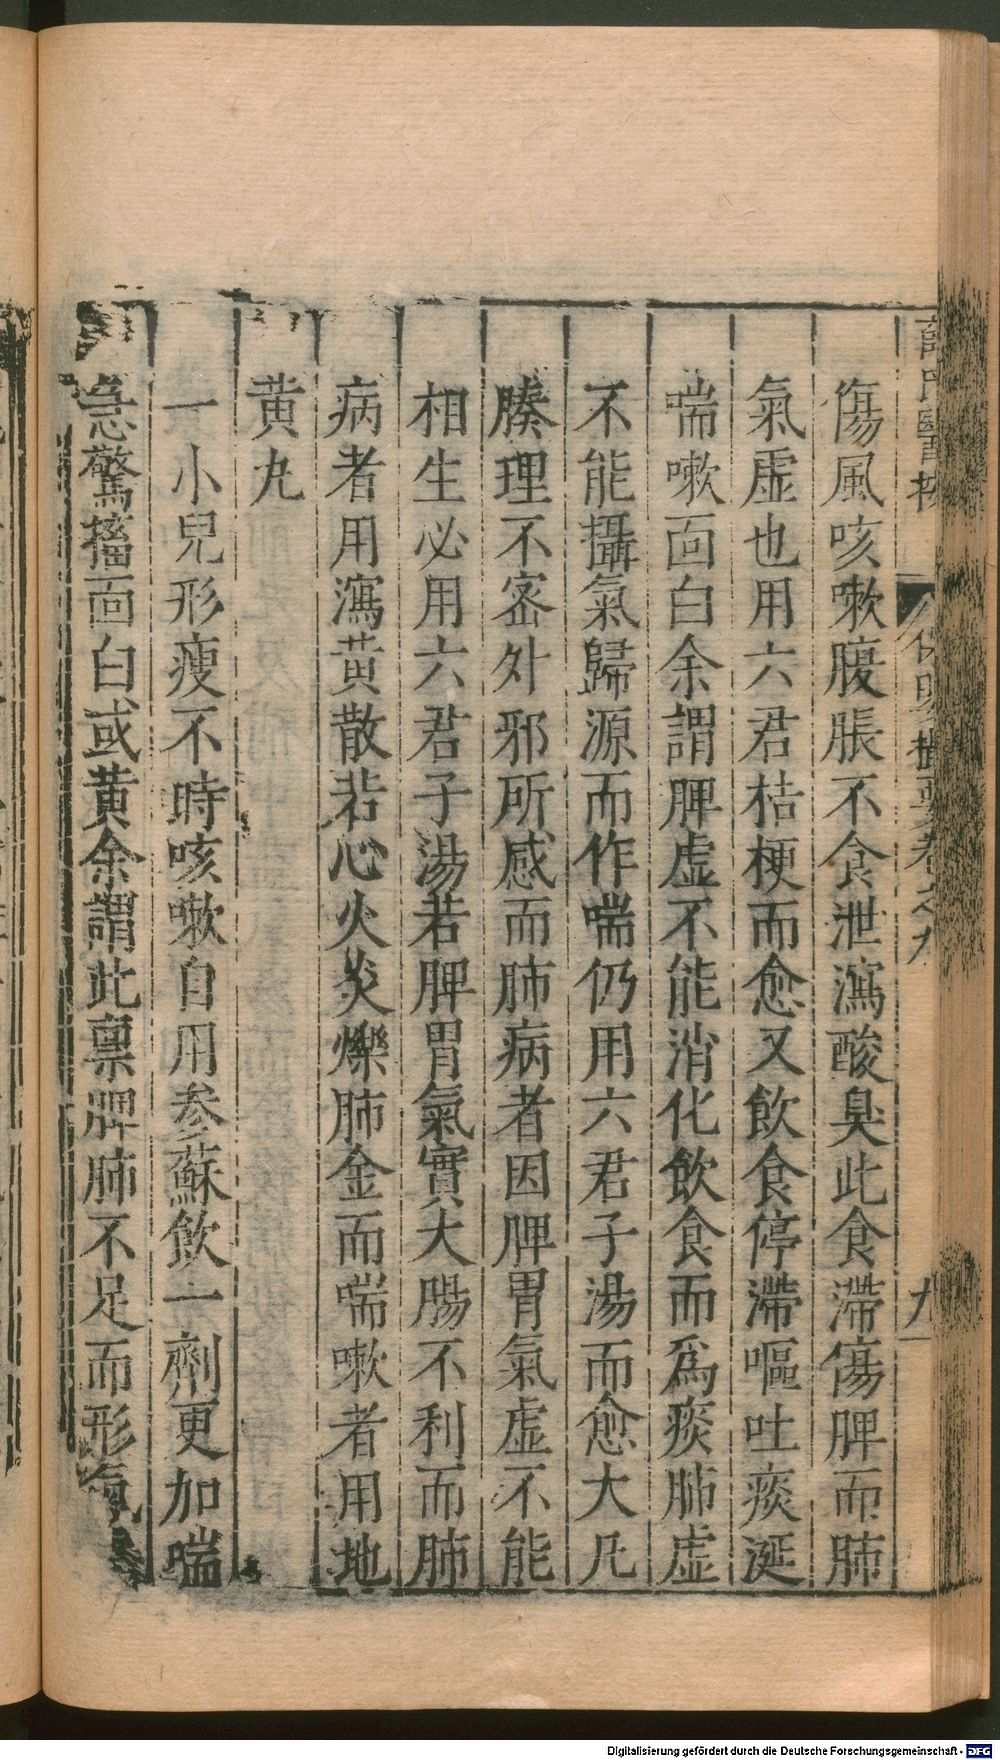 薛氏醫按
保嬰撮要卷之九
九
傷風咳嗽腹脹不食泄瀉酸臭此食滯傷脾而肺
氣虛也用六君桔梗而愈又飲食停滯嘔吐痰涎
喘嗽面白余謂脾虛不能消化飲食而爲痰肺虛
不能攝氣歸源而作喘仍用六君子湯而愈大凡
腠理不密外邪所感而肺病者因脾胃氣虛不能
相生必用六君子湯若脾胃氣實大腸不利而肺
病者用瀉黃散若心火炎爍肺金而喘嗽者用地
黃丸
一小兒形瘦不時咳嗽自用參蘇飲一劑更加喘
急驚搐面白或黃余謂此稟脾肺不足而形氣
Digitalisierung gefördert durch die Deutsche Forschungsgemeinschaft - DFG